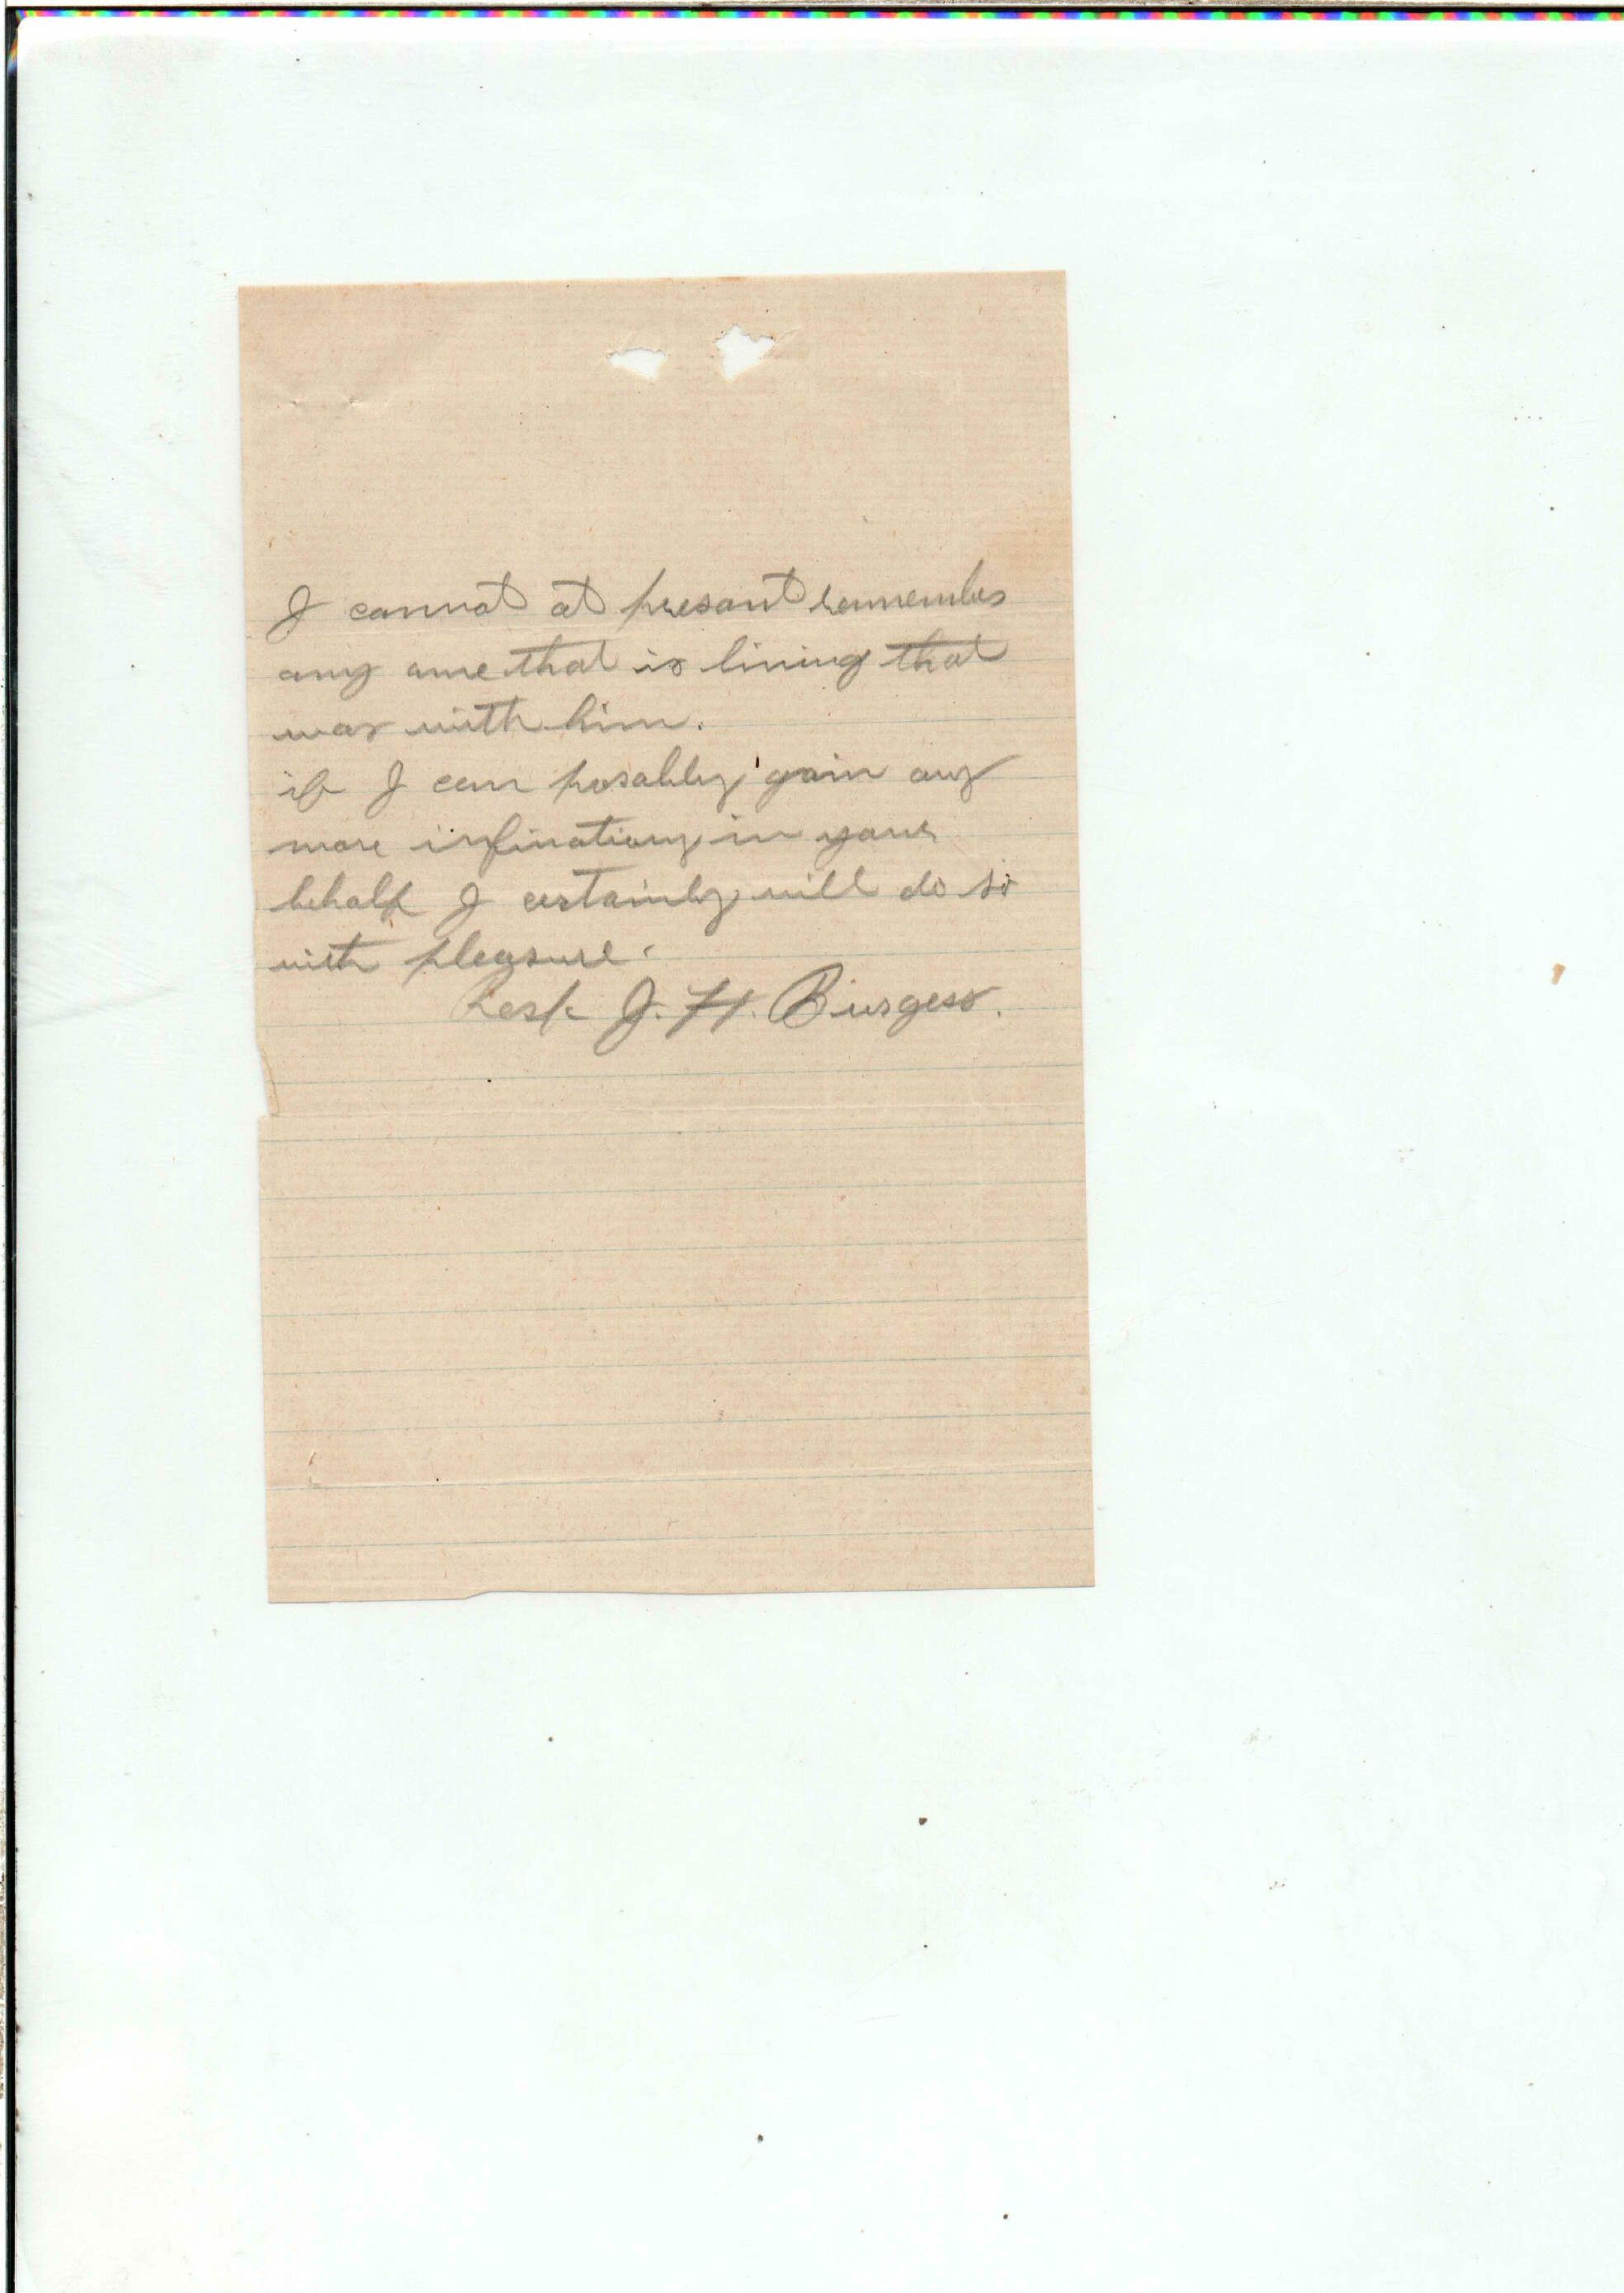 I cannot at presant remember
any one that is living that
was with him.
if I can posably gain any
more infination in your
behalf I certainly will do so
with pleasure.
Resp J. H. Burgess.